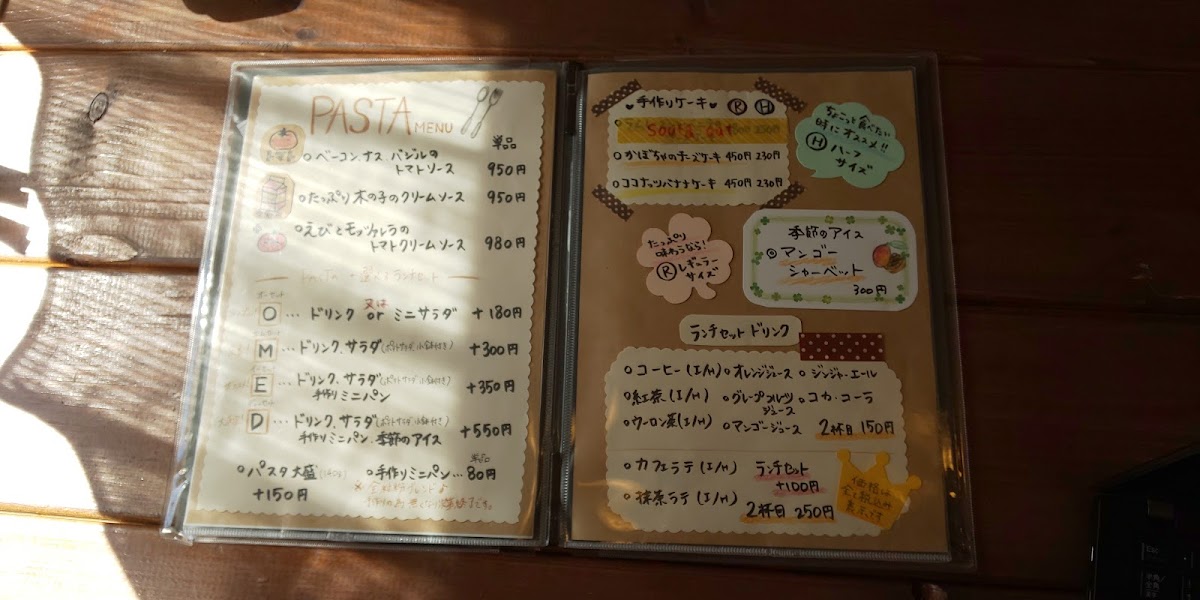 PASTA MENU
単品
ベーコン、ナス、バジルの
トマトソース 950円
たっぷり木の子のクリームソース 950円
えびとモッツァレラの
トマトクリームソース 980円
O … ドリンク 又は or ミニサラダ +180円
M … ドリンク、サラダ +300円
E … ドリンク、サラダ
手作りミニパン +350円
D … ドリンク、サラダ
手作りミニパン、季節のアイス +550円
パスタ大盛
+150円
手作りミニパン… 80円
手作りケーキ R H
Sould out
かぼちゃのチーズケーキ 450円 230円
ココナッツバナナケーキ 450円 230円
ちょこっと食べたい
時にオススメ!!
H ハーフ
サイズ
たっぷり
味わうなら!
R レギュラー
サイズ
季節のアイス
マンゴー
シャーベット
300円
ランチセットドリンク
コーヒー(I/H) オレンジジュース ジンジャーエール
紅茶(I/H) グレープフルーツ
ジュース コカ・コーラ
ウーロン茶(I/H) マンゴージュース 2杯目 150円
カフェラテ(I/H) ランチセット
+100円
抹茶ラテ(I/H) 2杯目 250円
価格は
全て税込み
表示です